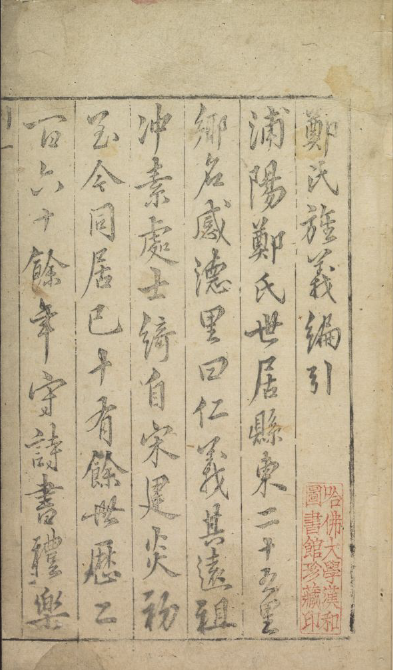 鄭氏旌義編引
浦陽鄭氏世居縣東二十五里
鄉名感德里曰仁義其遠祖
冲素處士綺自宋建炎初
至今同居已十有餘世歷二
百六十餘年守詩書禮樂
哈佛大學漢和
圖書館珍藏印